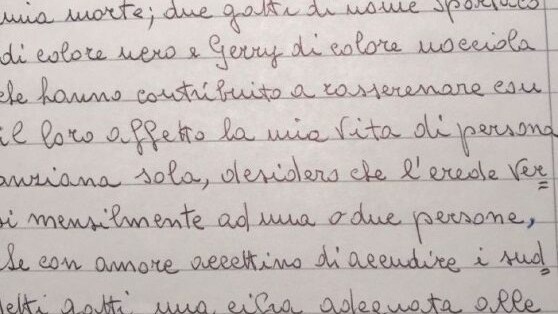 mia morte; due gatti di nome Spartaco
di colore nero e Gerry di colore nocciola
che hanno contribuito a rasserenare con
il loro affetto la mia vita di persona
anziana sola, desidero che l'erede ver=
si mensilmente ad una o due persone,
che con amore accettino di accudire i sud=
detti gatti una cifra adeguata alle